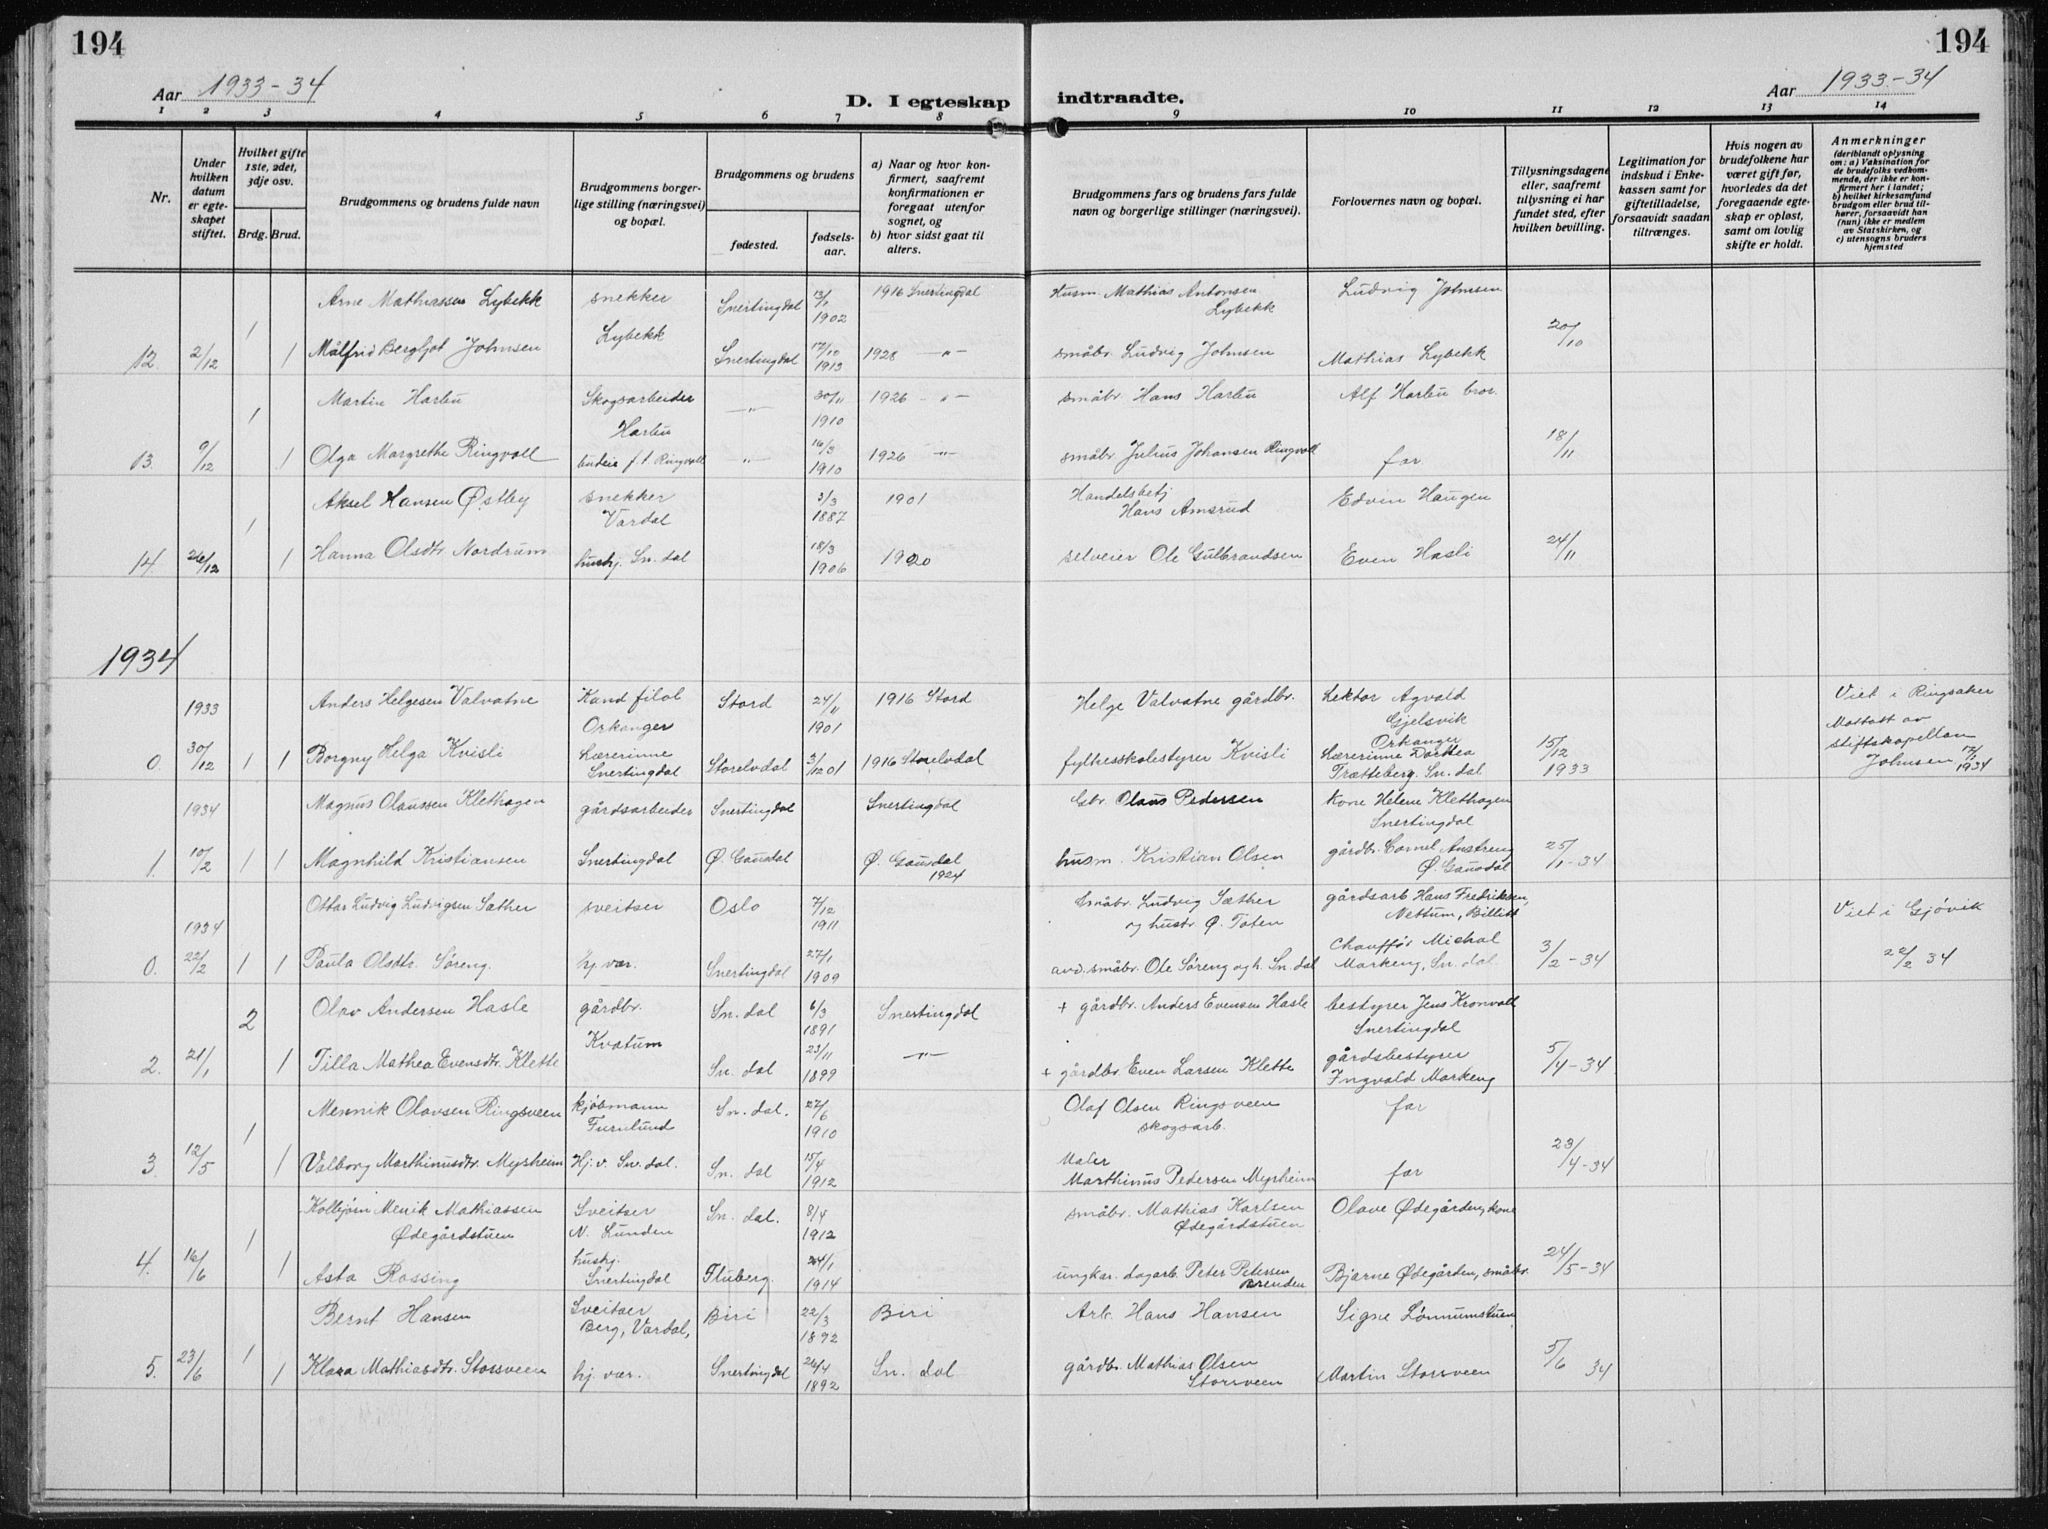 194
194
Aar 1933-34
D. I egteskap indtraadte.
Aar 1933-34
1 2 3 4 5 6 7 8 9 10 11 12 13 14
Nr.
Under hvilken datum er egteskapet stiftet.
Hvilket gifte 1ste, 2det, 3dje osv.
Brdg. Brud.
Brudgommens og brudens fulde navn
Brudgommens borgerlige stilling (næringsvei) og bopæl.
Brudgommens og brudens
fødested.
fødselsaar.
a) Naar og hvor konfirmert, saafremt konfirmationen er foregaat utenfor sognet, og
b) hvor sidst gaat til alters.
Brudgommens fars og brudens fars fulde navn og borgerlige stillinger (næringsvei).
Forlovernes navn og bopæl.
Tillysningsdagene eller, saafremt tillysning ei har fundet sted, efter hvilken bevilling.
Legitimation for indskud i Enkekassen samt for giftetilladelse, forsaavidt saadan tiltrænges.
Hvis nogen av brudefolkene har været gift før, hvorledes da det foregaaende egteskap er opløst, samt om lovlig skifte er holdt.
Anmerkninger
(deriblandt oplysning om: a) Vaksination for de brudefolks vedkommende, der ikke er konfirmert her i landet; b) hvilket kirkesamfund brudgom eller brud tilhører, forsaavidt han (hun) ikke er medlem av Statskirken, og c) utensogns bruders hjemsted
1 Arne Mathiassen Lybekk snekker Lybekk Snertingdal 13/1 1902 1916 Snertingdal Husm. Mathias Antonsen Lybekk Ludvig Johnsen
12. 2/12 1 Målfrid Bergljot Johnsen Snertingdal 17/10 1913 1928 —"— småbr. Ludvig Johnsen Mathias Lybekk 20/10
1 Martin Harlu Skogsarbeider Harlu —"— 30/11 1910 1926 —"— småbr. Hans Harlu Alf Harlu bror.
13. 9/12 1 Olga Margrethe Ringvoll Ringvoll —"— 16/3 1910 1926 —"— småbr. Julius Johansen Ringvoll far 18/11
1 Aksel Hansen Østby snekker Vardal 3/3 1887 1901 Handelsbetj Hans Amsrud Edvin Haugen
14. 26/12 1 Hanna Olsdtr. Nordrum hushj. Sn. dal 18/3 1906 1920 selveier Ole Gulbrandsen Even Hasli 24/11
1934
1933 Anders Helgesen Valvatne Kand filol Orkanger Stord 24/11 1901 1916 Stord Helge Valvatne gårdbr. Lektor Agvald Gjelsvik Orkanger Viet i Ringsaker
0. 30/12 1 1 Borgny Helga Kvisli Lærerinne Snertingdal Storelvdal 3/12 01 1916 Storelvdal fylkesskolestyrer Kvisli Lærerinne Dorthea Trætteberg. Sn. dal 15/12 1933 Mottatt av stiftskapellan Johnsen 17/1 1934
1934 Magnus Olaussen Klethagen gårdsarbeider Snertingdal Snertingdal Gbr. Olaus Pedersen kone Helene Klethagen Snertingdal
1. 10/2 1 1 Magnhild Kristiansen Snertingdal Ø. Gausdal Ø. Gausdal 1924 husm. Kristian Olsen gårdbr. Cornel Austreng Ø. Gausdal 25/1-34
1934 Ottar Ludvig Ludvigsen Sæther sveitser Oslo 7/12 1911 Småbr. Ludvig Sæther og hustr. Ø. Toten gårdsarb Hans Fredriksen, Nettum, Billitt Viet i Gjøvik
0. 22/2 1 1 Paula Olsdtr. Søreng. hj. vær. Snertingdal 27/1 1909 avd. småbr. Ole Søreng og h. Sn. dal Chauffør Michal Markeng, Sn. dal 3/2-34 22/2 34
2 Olav Andersen Hasle gårdbr. Kvatum Sn. dal 6/3 1891 Snertingdal + gårdbr. Anders Evensen Hasle bestyrer Jens Kronvoll Snertingdal
2. 21/1 1 Tilla Mathea Evensdtr. Klette Sn. dal 23/11 1899 —"— + gårdbr. Even Larsen Klette gårdsbestyrer Ingvald Markeng 5/4-34
1 Mennik Olavsen Ringsveen kjøbmann Furulund Sn. dal. 27/6 1910 Olaf Olsen Ringsveen skogsarb. far
3. 12/5 1 Valborg Marthinusdtr. Myrheim Hj. v. Sn. dal. Sn. dal 15/4 1912 Maler Marthinus Pedersen Myrheim far 23/4-34
1 Kolbjørn Menik Mathiassen Ødegårdstuen Sveitser N. Lunden Sn. dal. 8/4 1912 småbr. Mathias Karlsen Ødegårdstuen Olave Ødegården, kone
4. 16/6 1 Asta Rossing hushj. Snertingdal Fluberg. 24/1 1914 ungkar. dagarb. Peter Petersen Brenden Bjarne Ødegården, småbr. 24/5-34
1 Bernt Hansen Sveitser Berg, Vardal, Biri 22/3 1892 Biri Arb. Hans Hansen Signe Lønnumstuen
5. 23/6 1 Klara Mathiasdtr. Storsveen hj. vær. Snertingdal 26/4 1892 Sn. dal gårdbr. Mathias Olsen Storsveen Martin Storsveen 5/6 34